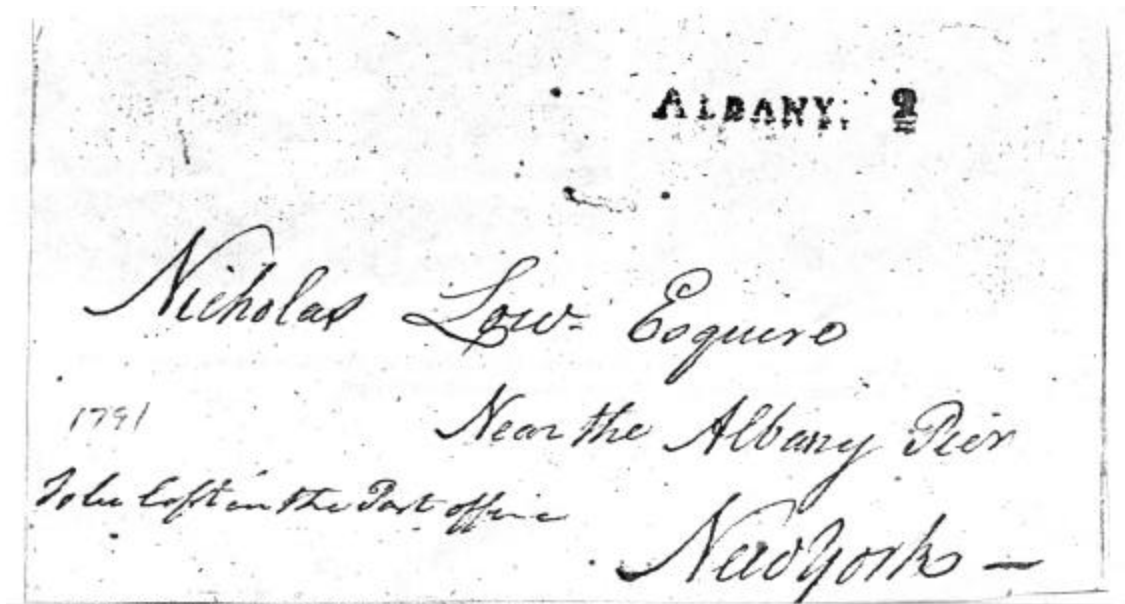 ALBANY. 2
Nicholas Low Esquire
1791
Near the Albany Pier
To be left in the Post office
New York —